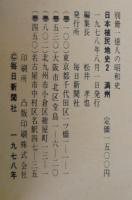 別冊一億人の昭和史
日本植民地史2 満州 定価一五〇〇円
一九七八年八月一日発行
編集長 松井孝也
発行所 毎日新聞社
〒一〇〇 東京都千代田区一ツ橋一―一―一
〒五三〇 大阪市北区堂島
〒八〇二 北九州市小倉北区紺屋町
〒四五〇 名古屋市中村区名駅四―七―三五
印刷所 凸版印刷株式会社
©毎日新聞社 一九七八年